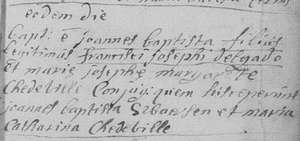 eodem die
Bapt: e joannes baptista filius
legitimus francisci josephi delgado
et marie josephe margarite
Chedeville Conjugum quem susceperunt
joannes baptista et maria
Catharina Chedeville